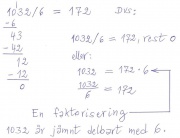 1032/6 = 172 Dvs:
-6
43
-42
12
-12
0
1032/6 = 172, rest 0
eller:
1032 = 172 · 6
1032/6 = 172
En faktorisering
1032 är jämnt delbart med 6.